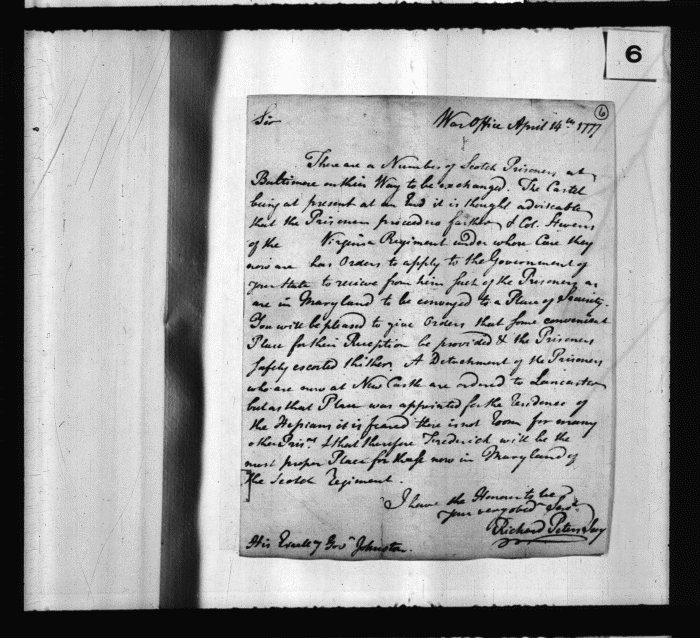 6
6
Sir War Office April 14th. 1777
There are a Number of Scotch Prisoners at
Baltimore on their Way to be exchanged. The Cartel
being at present at an End it is thought adviseable
that the Prisoners proceed no farther & Col. Stevens
of the Virginia Regiment under whose Care they
now are has Orders to apply to the Government of
your State to receive from him such of the Prisoners as
are in Maryland to be conveyed to a Place of Security.
You will be pleased to give Orders that some convenient
Place for their Reception be provided & the Prisoners
safely escorted thither. A Detachment of the Prisoners
who are now at New Castle are ordered to Lancaster
but as that Place was appointed for the Residence of
the Hessians it is feared there is not Room for many
other Prisrs. & that therefore Frederick will be the
most proper Place for those now in Maryland of
the Scotch Regiment.
I have the Honour to be
your very obedt Servt
Richard Peters Secy
His Excelly Govr Johnston.